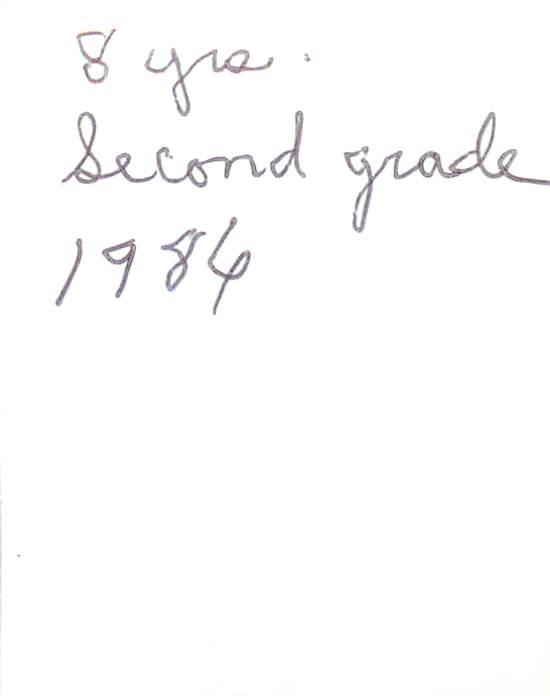 8 yrs.
Second grade
1984